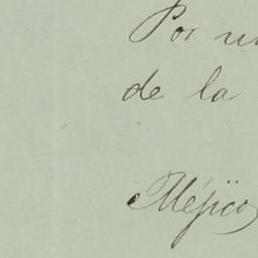 Por un
de la
Méjico